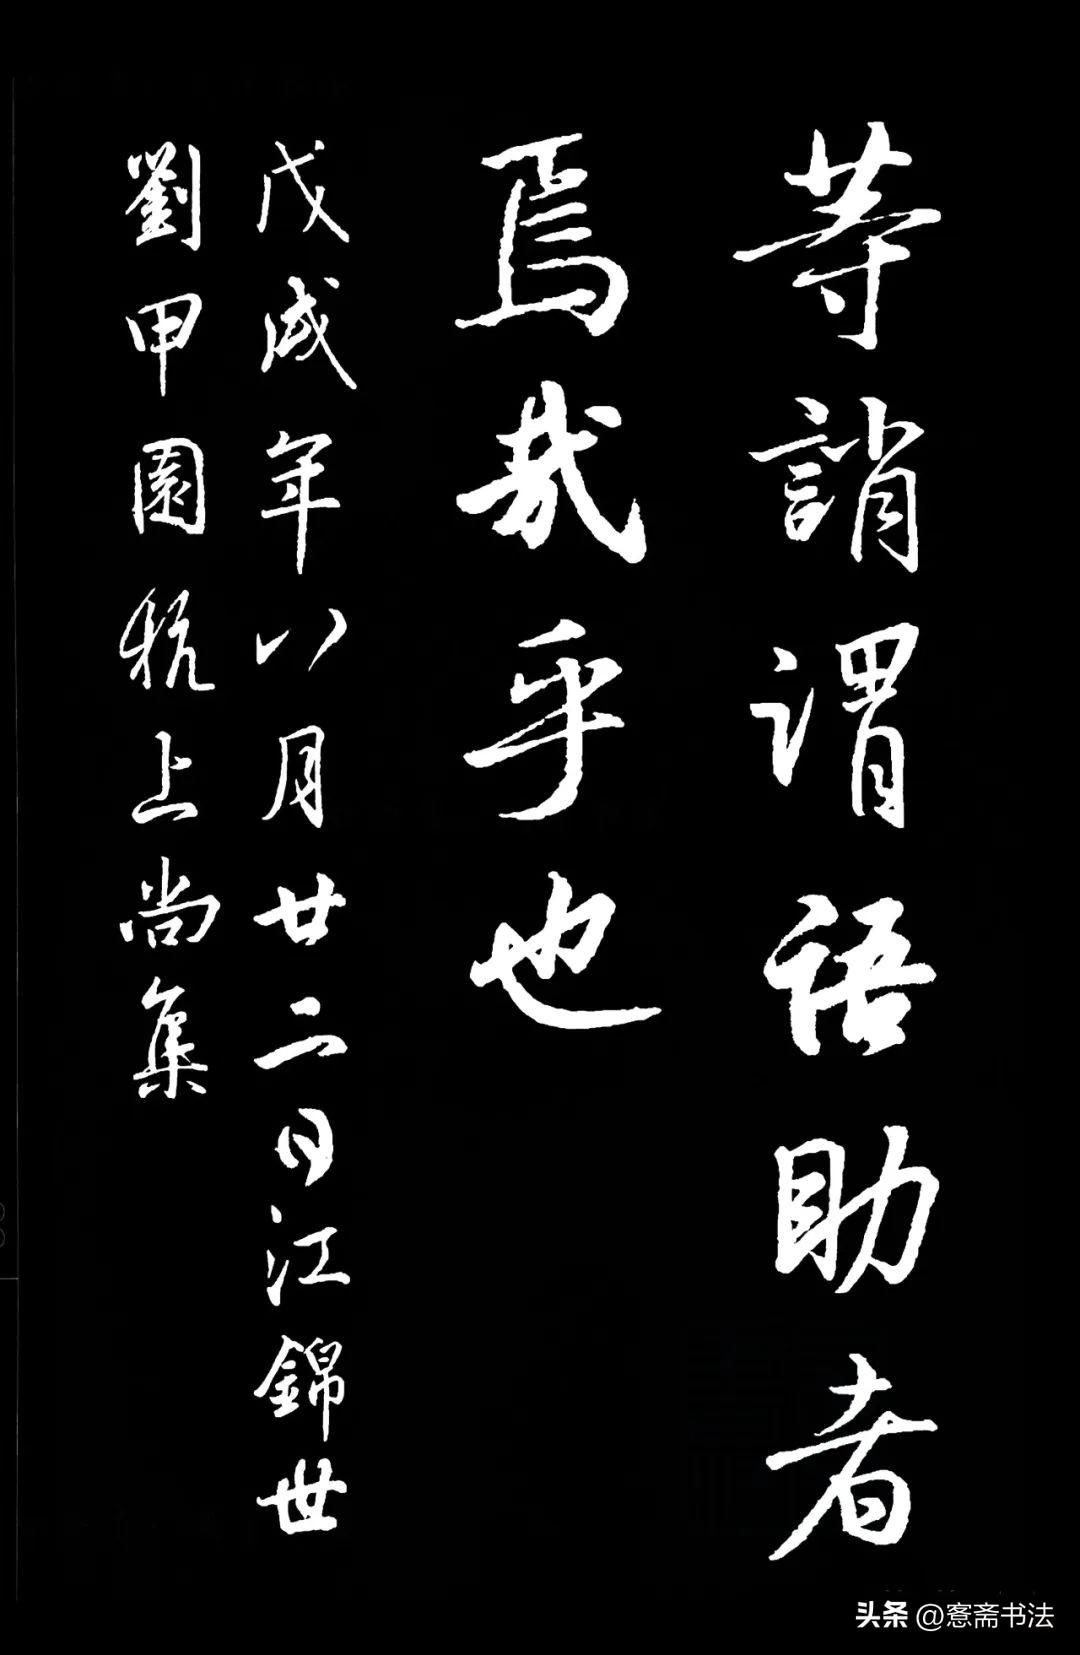 等誚謂語助者
焉哉乎也
戊戌年八月廿二日江錦世
劉甲園杭上尚集
头条 @窓斋书法